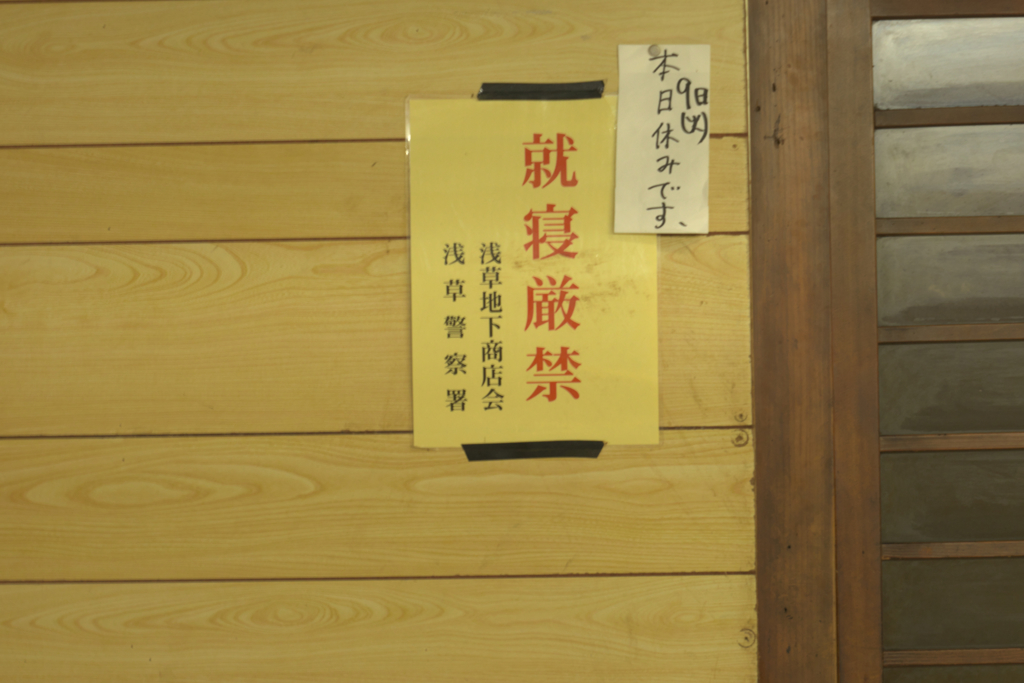 9日(火)
本日休みです、
就寝厳禁
浅草地下商店会
浅草警察署